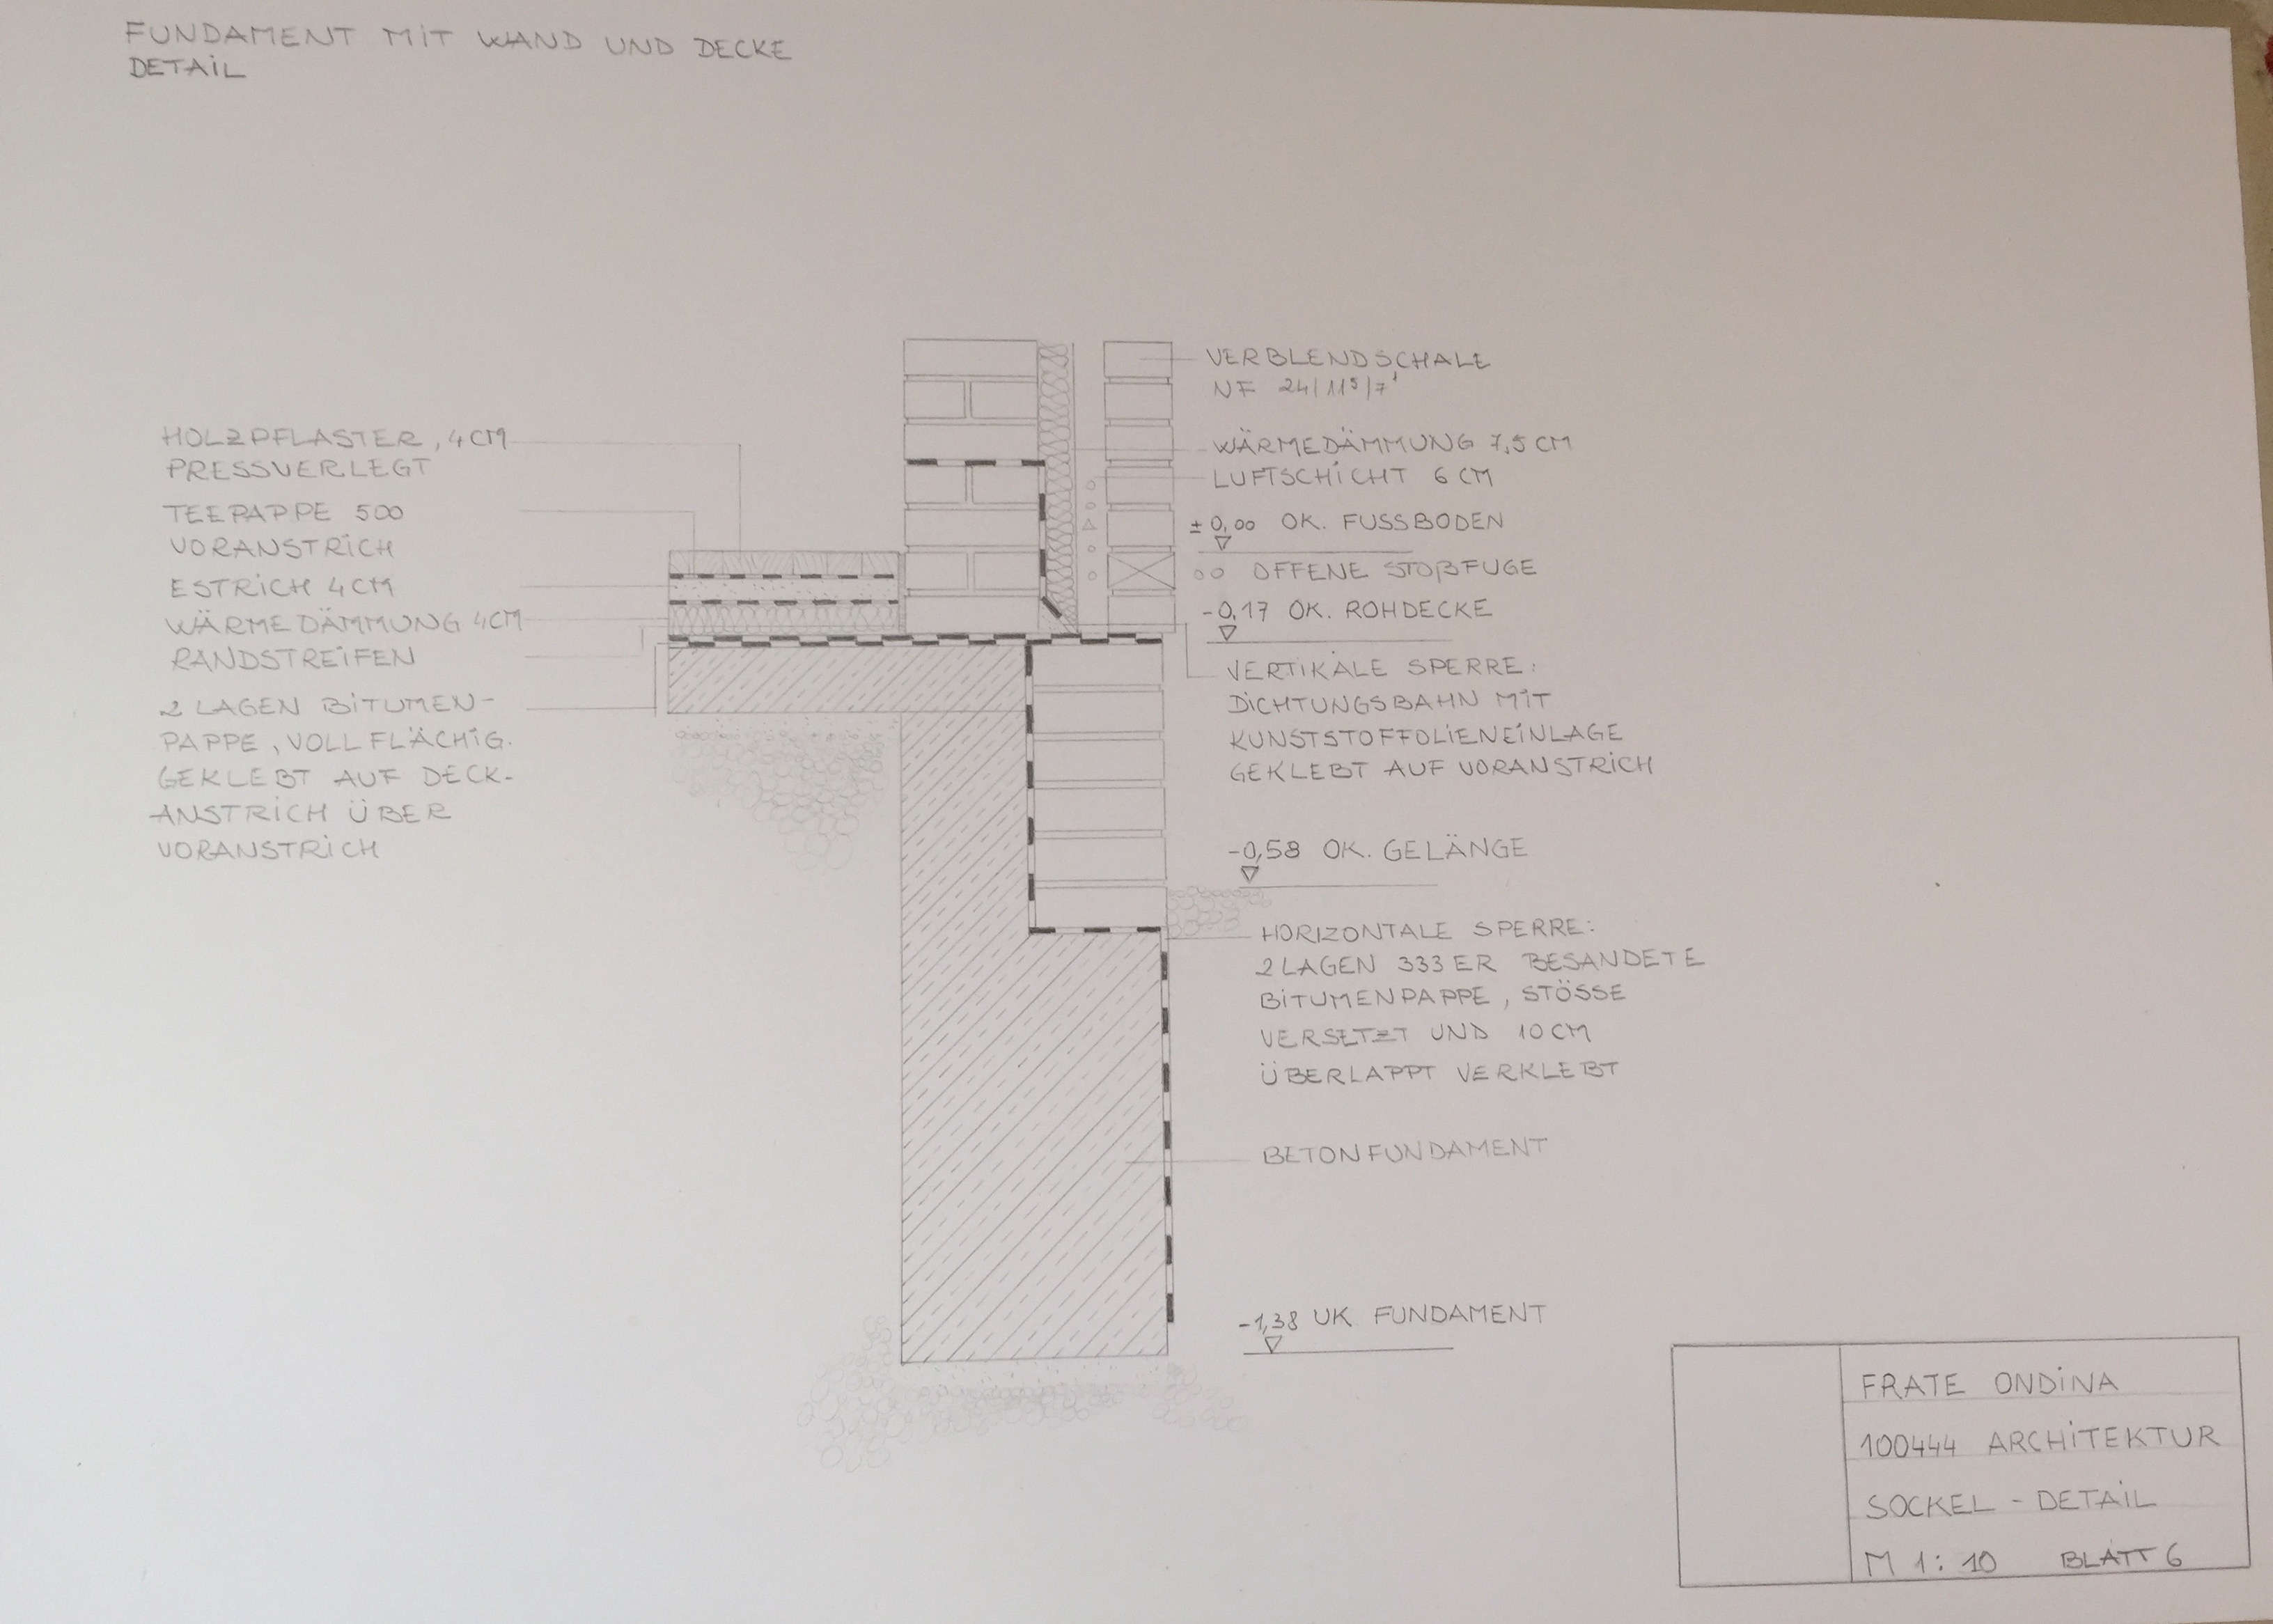 FUNDAMENT MIT WAND UND DECKE
DETAIL
HOLZPFLASTER, 4CM
PRESSVERLEGT
TEEPAPPE 500
VORANSTRICH
ESTRICH 4CM
WÄRMEDÄMMUNG 4CM
RANDSTREIFEN
2 LAGEN BITUMEN-
PAPPE, VOLLFLÄCHIG.
GEKLEBT AUF DECK-
ANSTRICH ÜBER
VORANSTRICH
VERBLENDSCHALE
NF 24/11⁵/7¹
WÄRMEDÄMMUNG 7,5 CM
LUFTSCHICHT 6 CM
± 0,00 OK. FUSSBODEN
OFFENE STOßFUGE
-0,17 OK. ROHDECKE
VERTIKALE SPERRE:
DICHTUNGSBAHN MIT
KUNSTSTOFFOLIENEINLAGE
GEKLEBT AUF VORANSTRICH
-0,58 OK. GELÄNGE
HORIZONTALE SPERRE:
2 LAGEN 333ER BESANDETE
BITUMENPAPPE, STÖSSE
VERSETZT UND 10CM
ÜBERLAPPT VERKLEBT
BETONFUNDAMENT
-1,38 UK FUNDAMENT
FRATE ONDINA
100444 ARCHITEKTUR
SOCKEL - DETAIL
M 1:10 BLATT 6